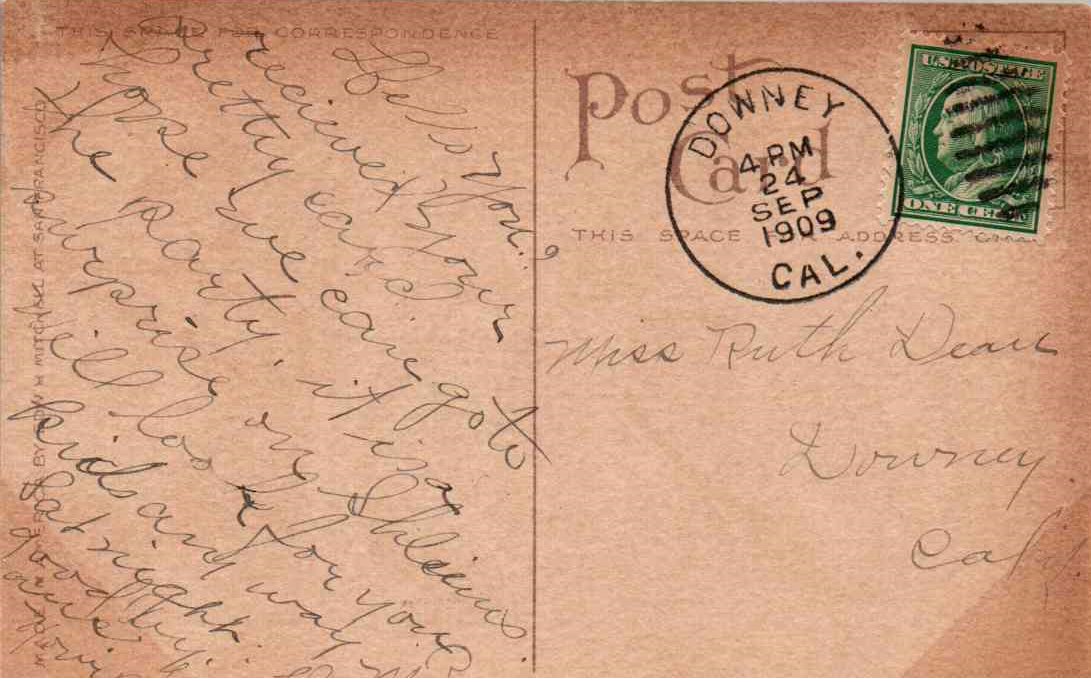 THIS SPACE FOR CORRESPONDENCE
Hello you?
received your
Pretty card
hope we can go to
the party, it is a
surprise on
ill look for you
kids and way
at night.
good by.
MITCHELL AT SAN FRANCISCO
Post
Card
THIS SPACE FOR ADDRESS ONLY
DOWNEY
4 PM
24
SEP
1909
CAL.
U.S. POSTAGE
ONE CENT
Miss Ruth Dean
Downey
Calif.